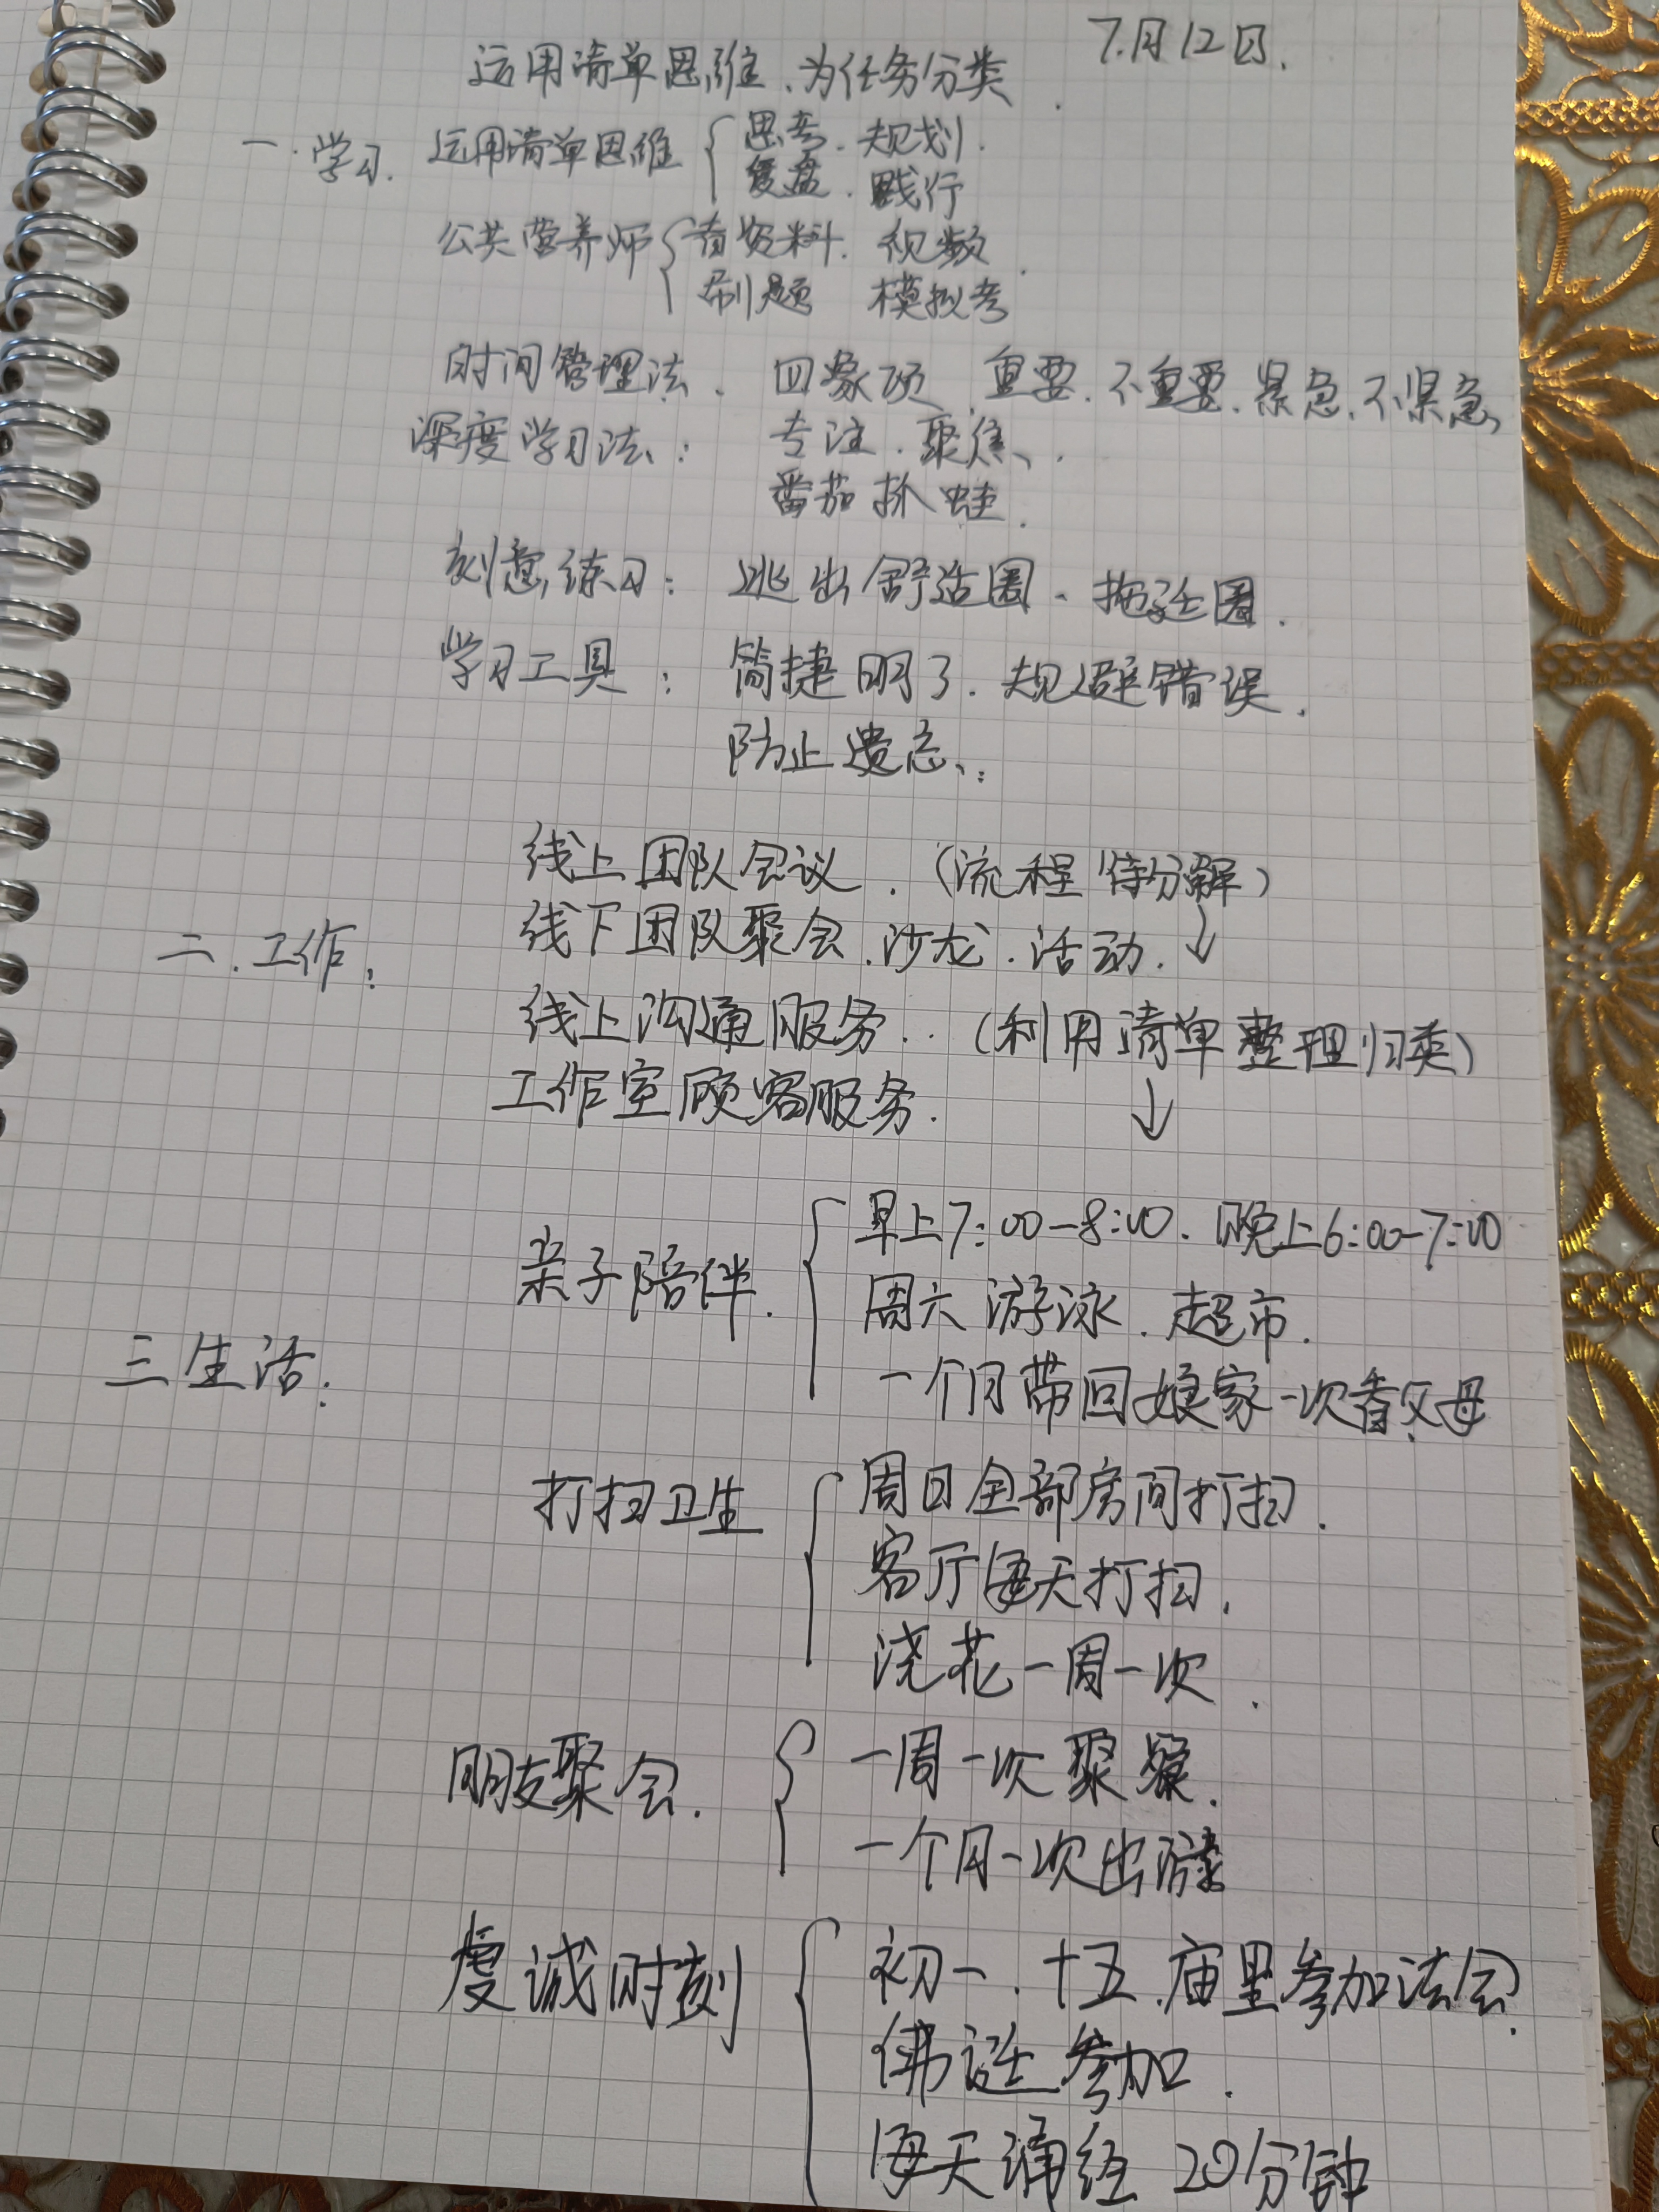 7.月12日.
运用清单思维、为任务分类.
一.学习. 运用清单思维 { 思考.规划.
复盘.践行
公共营养师 { 看资料. 视频.
刷题 模拟考
时间管理法、 四象项、重要、不重要、紧急、不紧急、
深度学习法、: 专注.聚焦、.
番茄 抓蛙.
刻意练习: 逃出舒适圈、拖延圈.
学习工具: 简捷明了.规避错误.
防止遗忘、:
线上团队会议.(流程待分解)
↓
二.工作: 线下团队聚会.沙龙.活动.
线上沟通服务..(利用清单整理归类)
↓
工作室顾客服务.
三生活: 亲子陪伴. { 早上7:00-8:00. 晚上6:00-7:00
周六 游泳.超市.
一个月带回娘家一次看父母
打扫卫生 { 周日全部房间打扫.
客厅每天打扫.
浇花一周一次.
朋友聚会. { 一周一次聚餐.
一个月一次出游
虔诚时刻 { 初一、十五.庙里参加法会.
佛诞参加.
每天诵经 20分钟